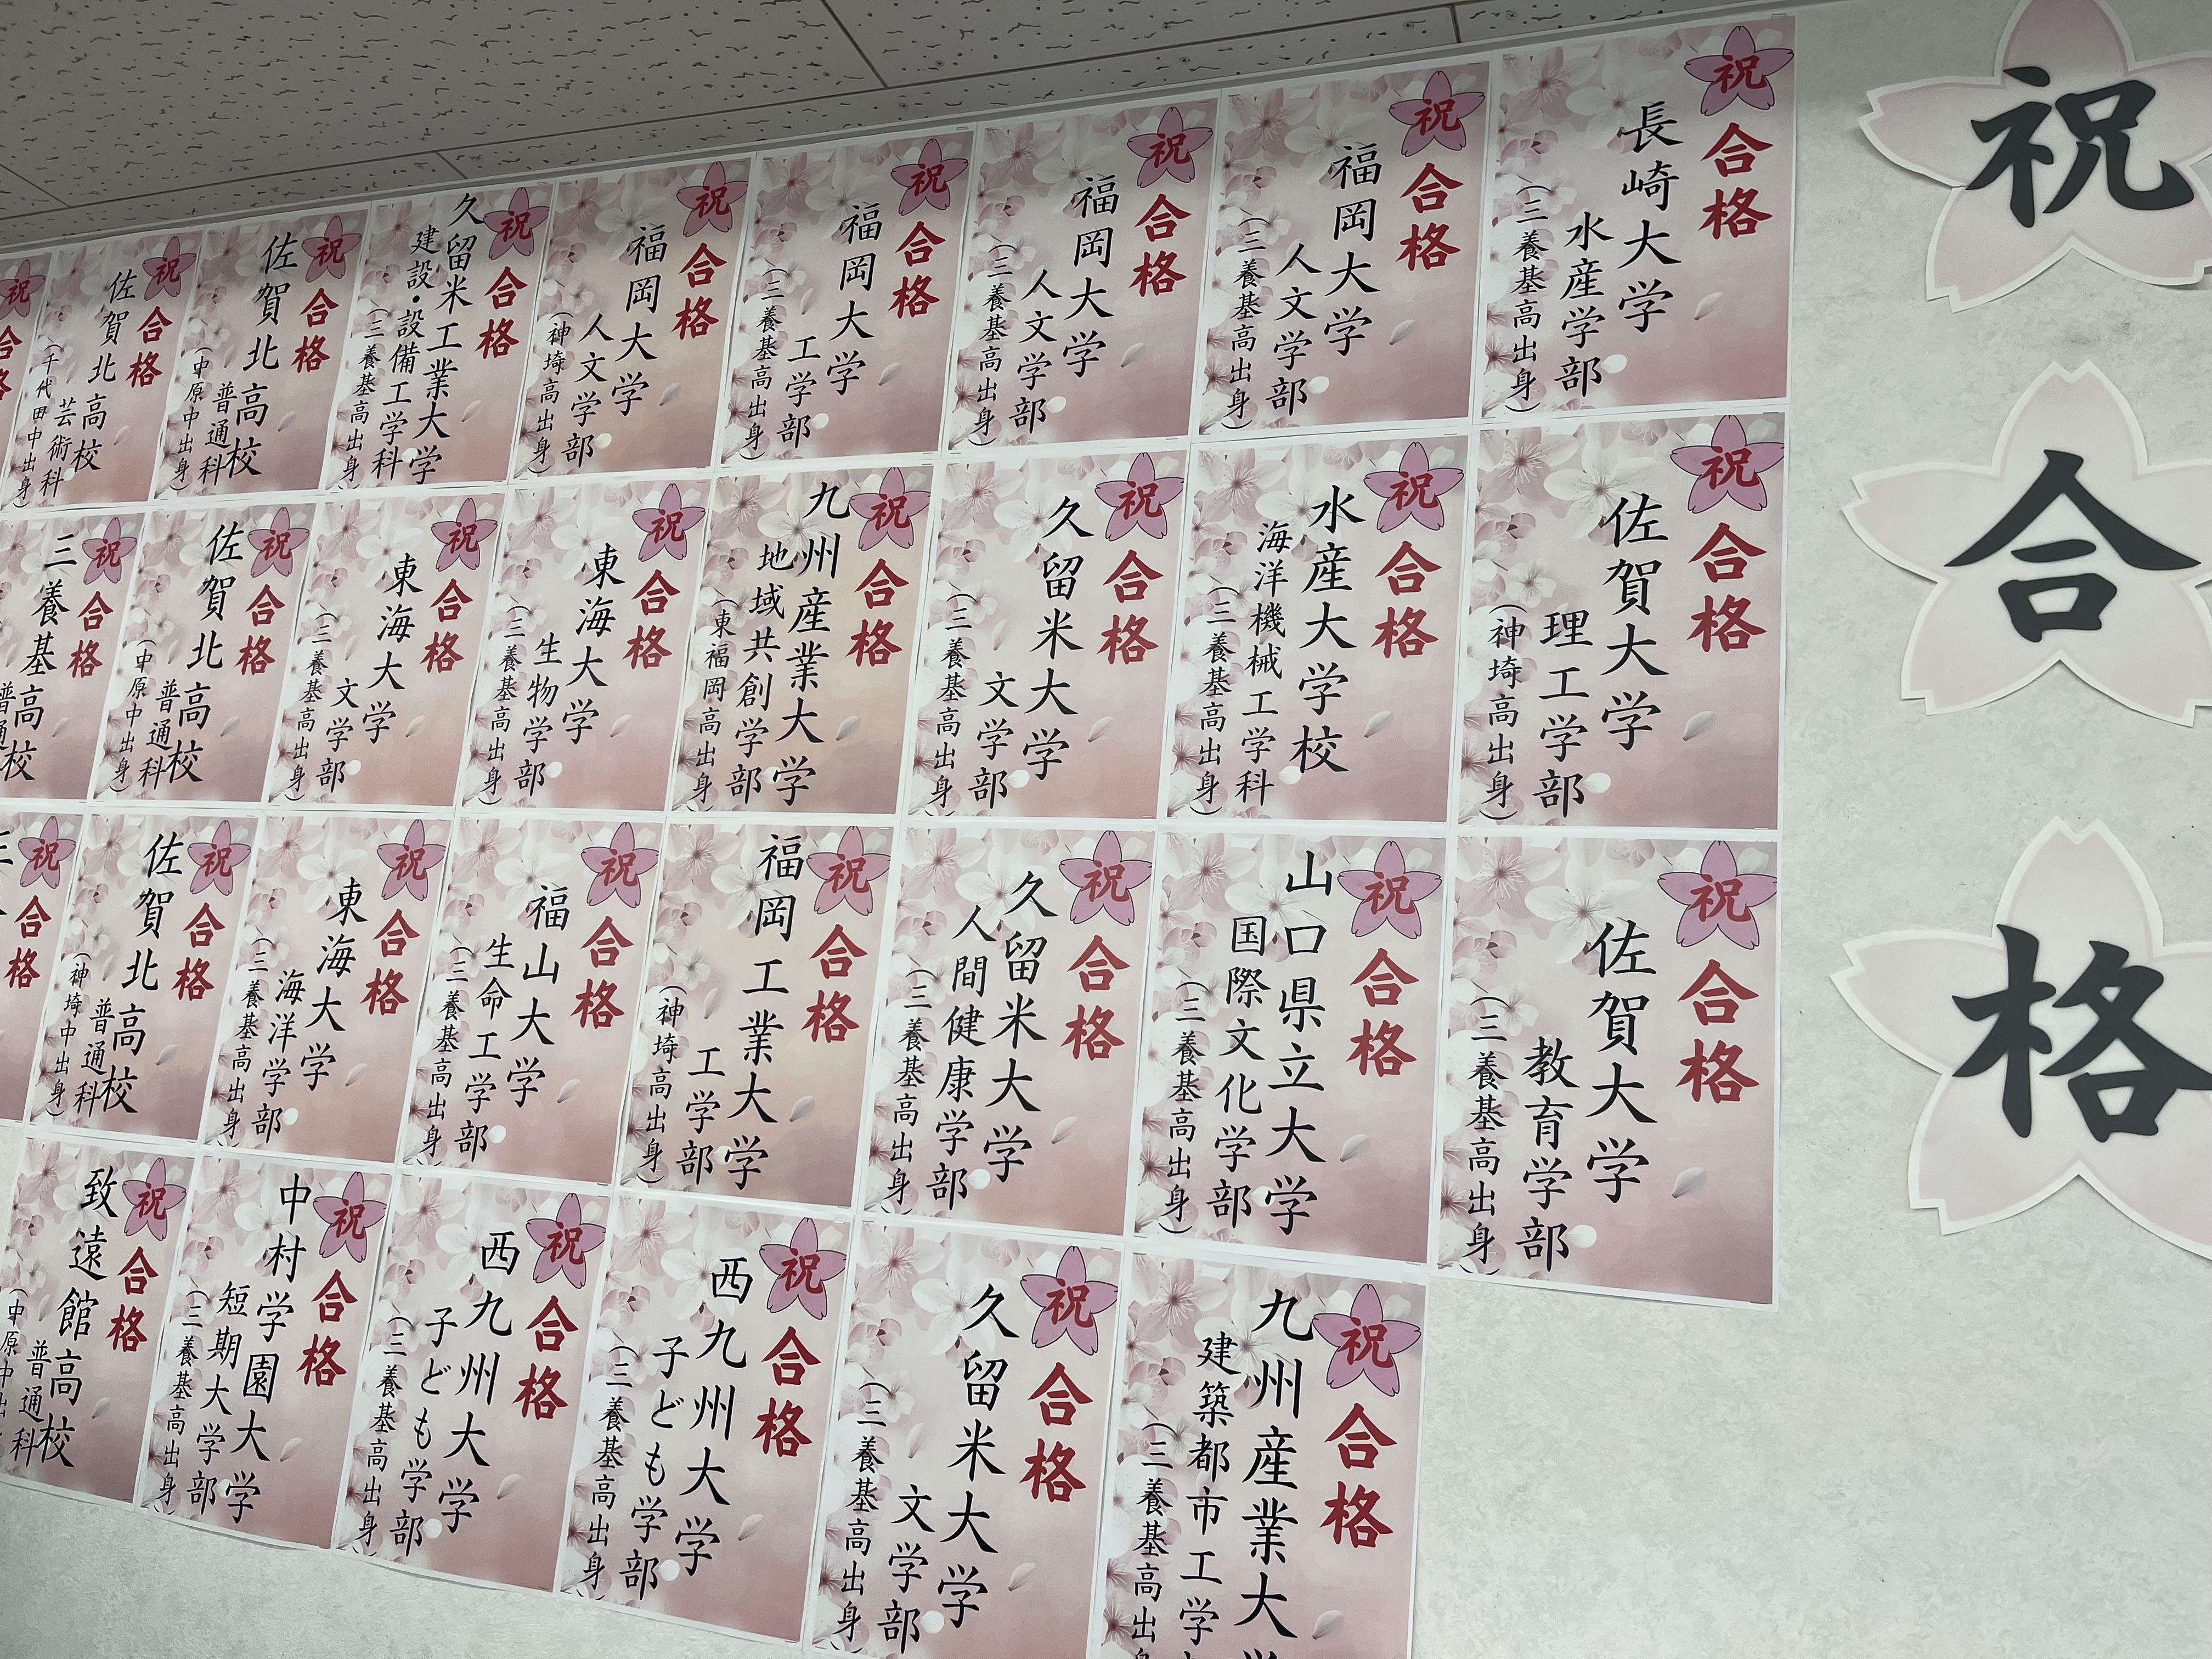 祝
合
格
祝
合格
長崎大学
水産学部
(三養基高出身)
祝
合格
福岡大学
人文学部
(三養基高出身)
祝
合格
福岡大学
人文学部
(三養基高出身)
祝
合格
福岡大学
工学部
(三養基高出身)
祝
合格
福岡大学
人文学部
(神埼高出身)
祝
合格
久留米工業大学
建設・設備工学科
(三養基高出身)
祝
合格
佐賀北高校
普通科
(中原中出身)
祝
合格
佐賀北高校
芸術科
(千代田中出身)
祝
合格
祝
合格
佐賀大学
理工学部
(神埼高出身)
祝
合格
水産大学校
海洋機械工学科
(三養基高出身)
祝
合格
久留米大学
文学部
(三養基高出身)
祝
合格
九州産業大学
地域共創学部
(東福岡高出身)
祝
合格
東海大学
生物学部
(三養基高出身)
祝
合格
東海大学
文学部
(三養基高出身)
祝
合格
佐賀北高校
普通科
(中原中出身)
祝
合格
三養基高校
普通
祝
合格
佐賀大学
教育学部
(三養基高出身)
祝
合格
山口県立大学
国際文化学部
(三養基高出身)
祝
合格
久留米大学
人間健康学部
(三養基高出身)
祝
合格
福岡工業大学
工学部
(神埼高出身)
祝
合格
福山大学
生命工学部
(三養基高出身)
祝
合格
東海大学
海洋学部
(三養基高出身)
祝
合格
佐賀北高校
普通科
(神埼中出身)
祝
合格
祝
合格
九州産業大
建築都市工学
(三養基高出
祝
合格
久留米大学
文学部
(三養基高出身)
祝
合格
西九州大学
子ども学部
(三養基高出身)
祝
合格
西九州大学
子ども学部
(三養基高出身)
祝
合格
中村学園大学
短期大学部
(三養基高出身)
祝
合格
致遠館高校
普通科
(中原中出